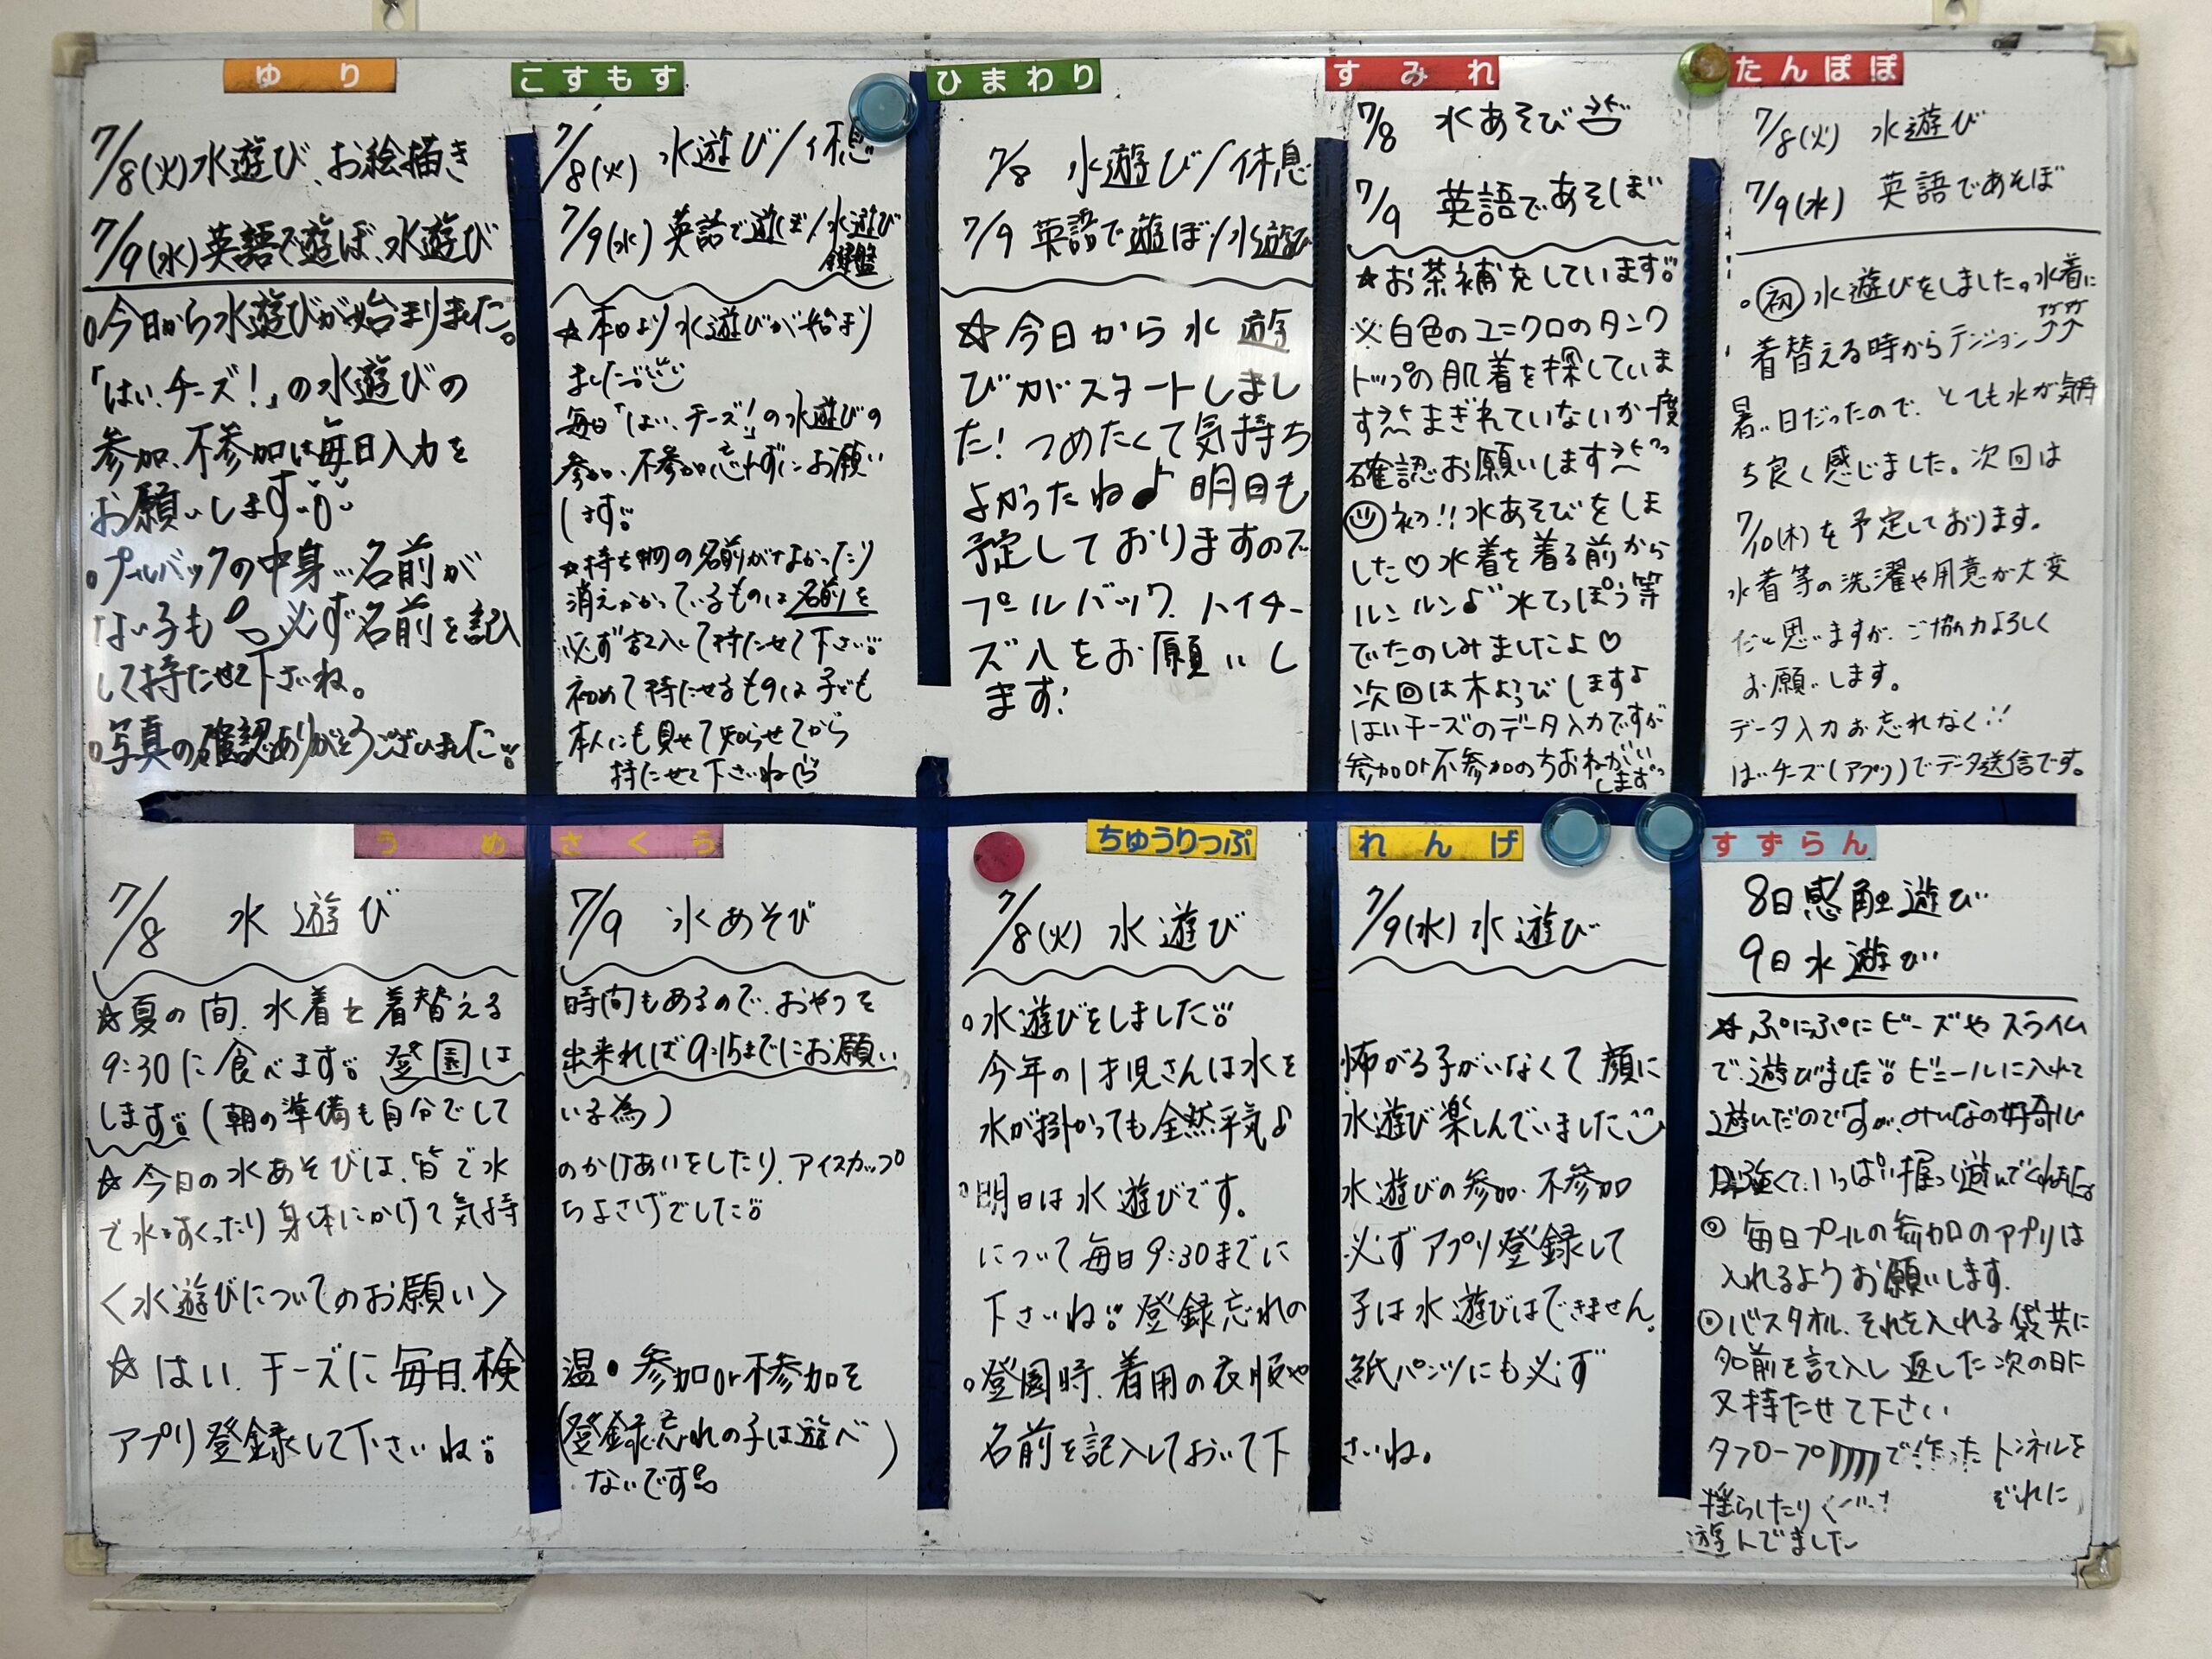 ゆり
7/8(火)水遊び、お絵描き
7/9(水)英語で遊ぼ、水遊び
○今日から水遊びが始まりました。
「はい、チーズ!」の水遊びの
参加、不参加は毎日入力を
お願いします
○プールバックの中身…名前が
ない子も 必ず名前を記入
して持たせて下さいね。
○写真の確認ありがとうございました
こすもす
7/8(火) 水遊び/休息
7/9(水) 英語で遊ぼ/水遊び
鍵盤
☆本日より水遊びが始まり
ました
毎日「はい、チーズ!」の水遊びの
参加、不参加忘れずにお願い
します
☆持ち物の名前がなかったり
消えかかっているものは名前を
必ず記入して持たせて下さい
初めて持たせるものは子ども
本人にも見せて知らせてから
持たせて下さいね
ひまわり
7/8 水遊び/休息
7/9 英語で遊ぼ/水遊び
☆今日から水遊
びがスタートしまし
た!つめたくて気持ち
よかったね♪明日も
予定しておりますので
プールバック、ハイチー
ズ入をお願いし
ます!
すみれ
7/8 水あそび
7/9 英語であそぼ
★お茶補充しています
※白色のユニクロのタンク
トップの肌着を探していま
す まぎれていないか一度
確認お願いします
初!!水あそびをしま
した♡水着を着る前から
ルンルン♪水てっぽう等
でたのしみましたよ♡
次回は木ようびしますよ
はいチーズのデータ入力ですが
参加or不参加のちおねがい
します
たんぽぽ
7/8(火) 水遊び
7/9(水) 英語であそぼ
○初 水遊びをしました。水着に
着替える時からテンション アゲアゲ↑↑
暑い日だったので、とても水が気持
ち良く感じました。次回は
7/10(木)を予定しております。
水着等の洗濯や用意が大変
だと思いますが、ご協力よろしく
お願いします。
データ入力お忘れなく!!
はいチーズ(アプリ)でデータ送信です。
うめ さくら
7/8 水遊び 7/9 水あそび
☆夏の間、水着を着替える 時間もあるので、おやつを
9:30に食べます 登園は 出来れば9:15までにお願い
します(朝の準備も自分でして いる為)
☆今日の水あそびは、皆で水 のかけあいをしたり、アイスカップ
で水をすくったり身体にかけて気持 ちよさげでした
〈水遊びについてのお願い〉
☆はい、チーズに毎日、検 温・参加or不参加を
アプリ登録して下さいね (登録忘れの子は遊べ
ないです)
ちゅうりっぷ れんげ
7/8(火) 水遊び 7/9(水) 水遊び
○水遊びをしました
今年の1才児さんは水を 怖がる子がいなくて顔に
水が掛かっても全然平気♪ 水遊び楽しんでいました
○明日は水遊びです。 水遊びの参加、不参加
について毎日9:30までに 必ずアプリ登録して
下さいね 登録忘れの 子は水遊びはできません。
○登園時、着用の衣服や 紙パンツにも必ず
名前を記入しておいて下 さいね。
すずらん
8日感触遊び
9日水遊び
☆ぷにぷにビーズやスライム
で遊びました ビニールに入れて
遊んだのですが、みんなの好奇心
強くて、いっぱい握って遊んでくれました
◎毎日プールの参加のアプリは
入れるようお願いします。
◎バスタオル、それを入れる袋共に
名前を記入し返した次の日に
又持たせて下さい
タフロープで作ったトンネルを
揺らしたり
遊んでました